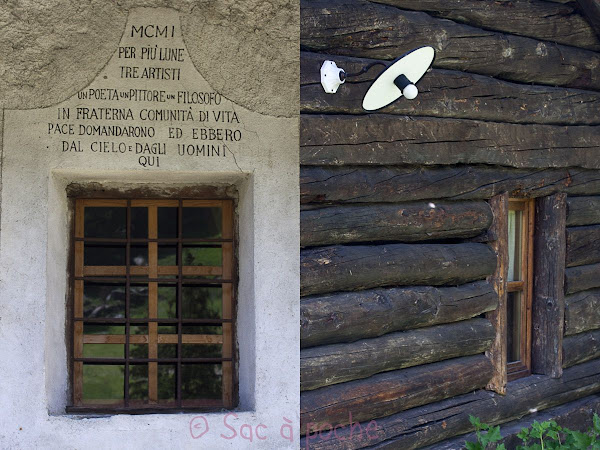 MCMI
PER PIÙ LUNE
TRE ARTISTI
UN POETA UN PITTORE UN FILOSOFO
IN FRATERNA COMUNITÁ DI VITA
PACE DOMANDARONO ED EBBERO
DAL CIELO E DAGLI UOMINI
QUI
© Sac à poche